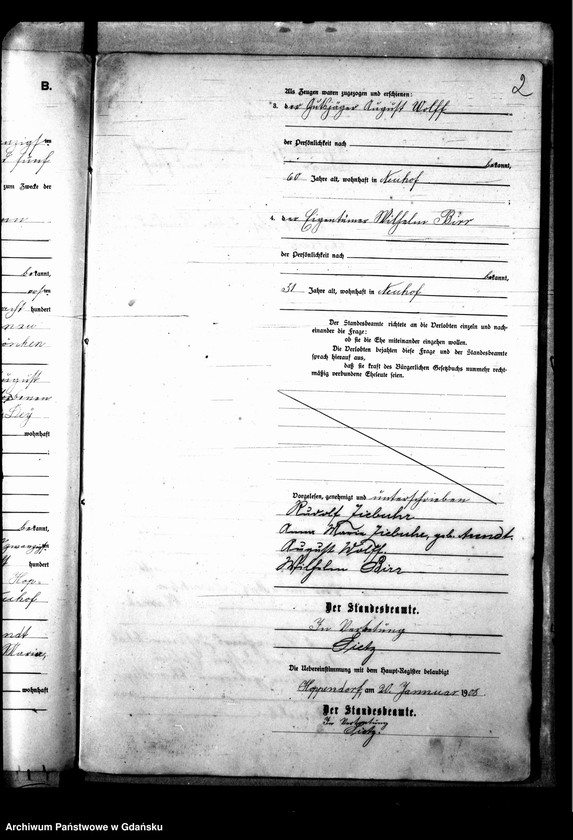 B.
2
Als Zeugen waren zugezogen und erschienen:
3. der Gutsjäger August Wolff
der Persönlichkeit nach
bekannt,
60 Jahre alt, wohnhaft in Neuhof
;
4. der Eigentümer Wilhelm Birr
der Persönlichkeit nach
bekannt,
51 Jahre alt, wohnhaft in Neuhof
Der Standesbeamte richtete an die Verlobten einzeln und nach-
einander die Frage:
ob sie die Ehe miteinander eingehen wollen.
Die Verlobten bejahten diese Frage und der Standesbeamte
sprach hierauf aus,
daß sie kraft des Bürgerlichen Gesetzbuchs nunmehr recht-
mäßig verbundene Eheleute seien.
Vorgelesen, genehmigt und unterschrieben
Rudolf Ziebuhr
Anna Maria Ziebuhr, geb. Arendt.
August Wolff.
Wilhelm Birr
Der Standesbeamte.
In Vertretung
Dietz
Die Uebereinstimmung mit dem Haupt-Register beglaubigt
Hoppendorf, am 20. Januar 1905
Der Standesbeamte.
In Vertretung
Dietz.
zum Zwecke der
bekannt,
hundert
August
wohnhaft
;
bekannt,
hundert
Hop-
Neuhof
Maria,
wohnhaft
Archiwum Państwowe w Gdańsku